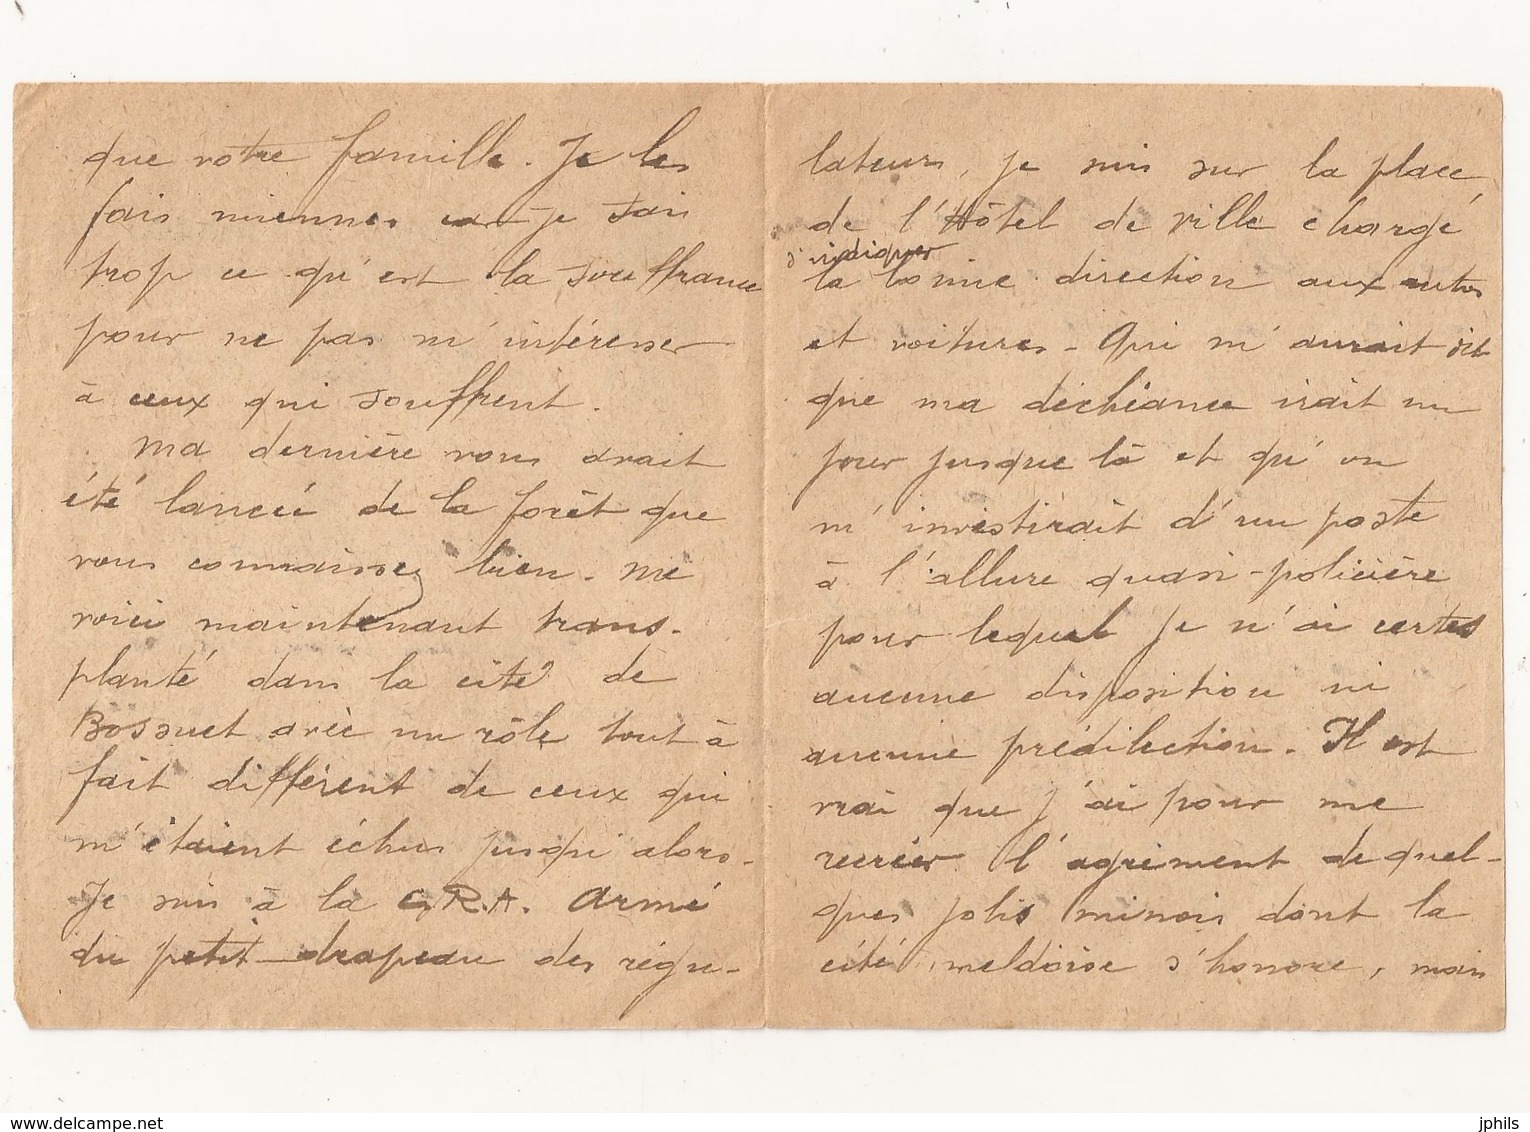 que votre famille. Je les
fais miennes car je sais
trop ce qu'est la souffrance
pour ne pas m'intéresser
à ceux qui souffrent.
Ma dernière vous avait
été lancée de la forêt que
vous connaissez bien. Me
voici maintenant trans-
planté dans la cité de
Bossuet avec un rôle tout à
fait différent de ceux qui
m'étaient échus jusqu'alors.
Je suis à la C.R.A. Armé
du petit drapeau des régu-
lateurs, je suis sur la place
de l'Hôtel de ville chargé
d'indiquer
la bonne direction aux autos
et voitures - Qui m'aurait dit
que ma déchéance irait un
jour jusque là et qu'on
m'investirait d'un poste
à l'allure quasi-policière
pour lequel je n'ai certes
aucune disposition ni
aucune prédilection. Il est
vrai que j'ai pour me
recréer l'agrément de quel-
ques jolis minois dont la
cité meldoise s'honore, mais
Uploaded to www.delcampe.net
jphils